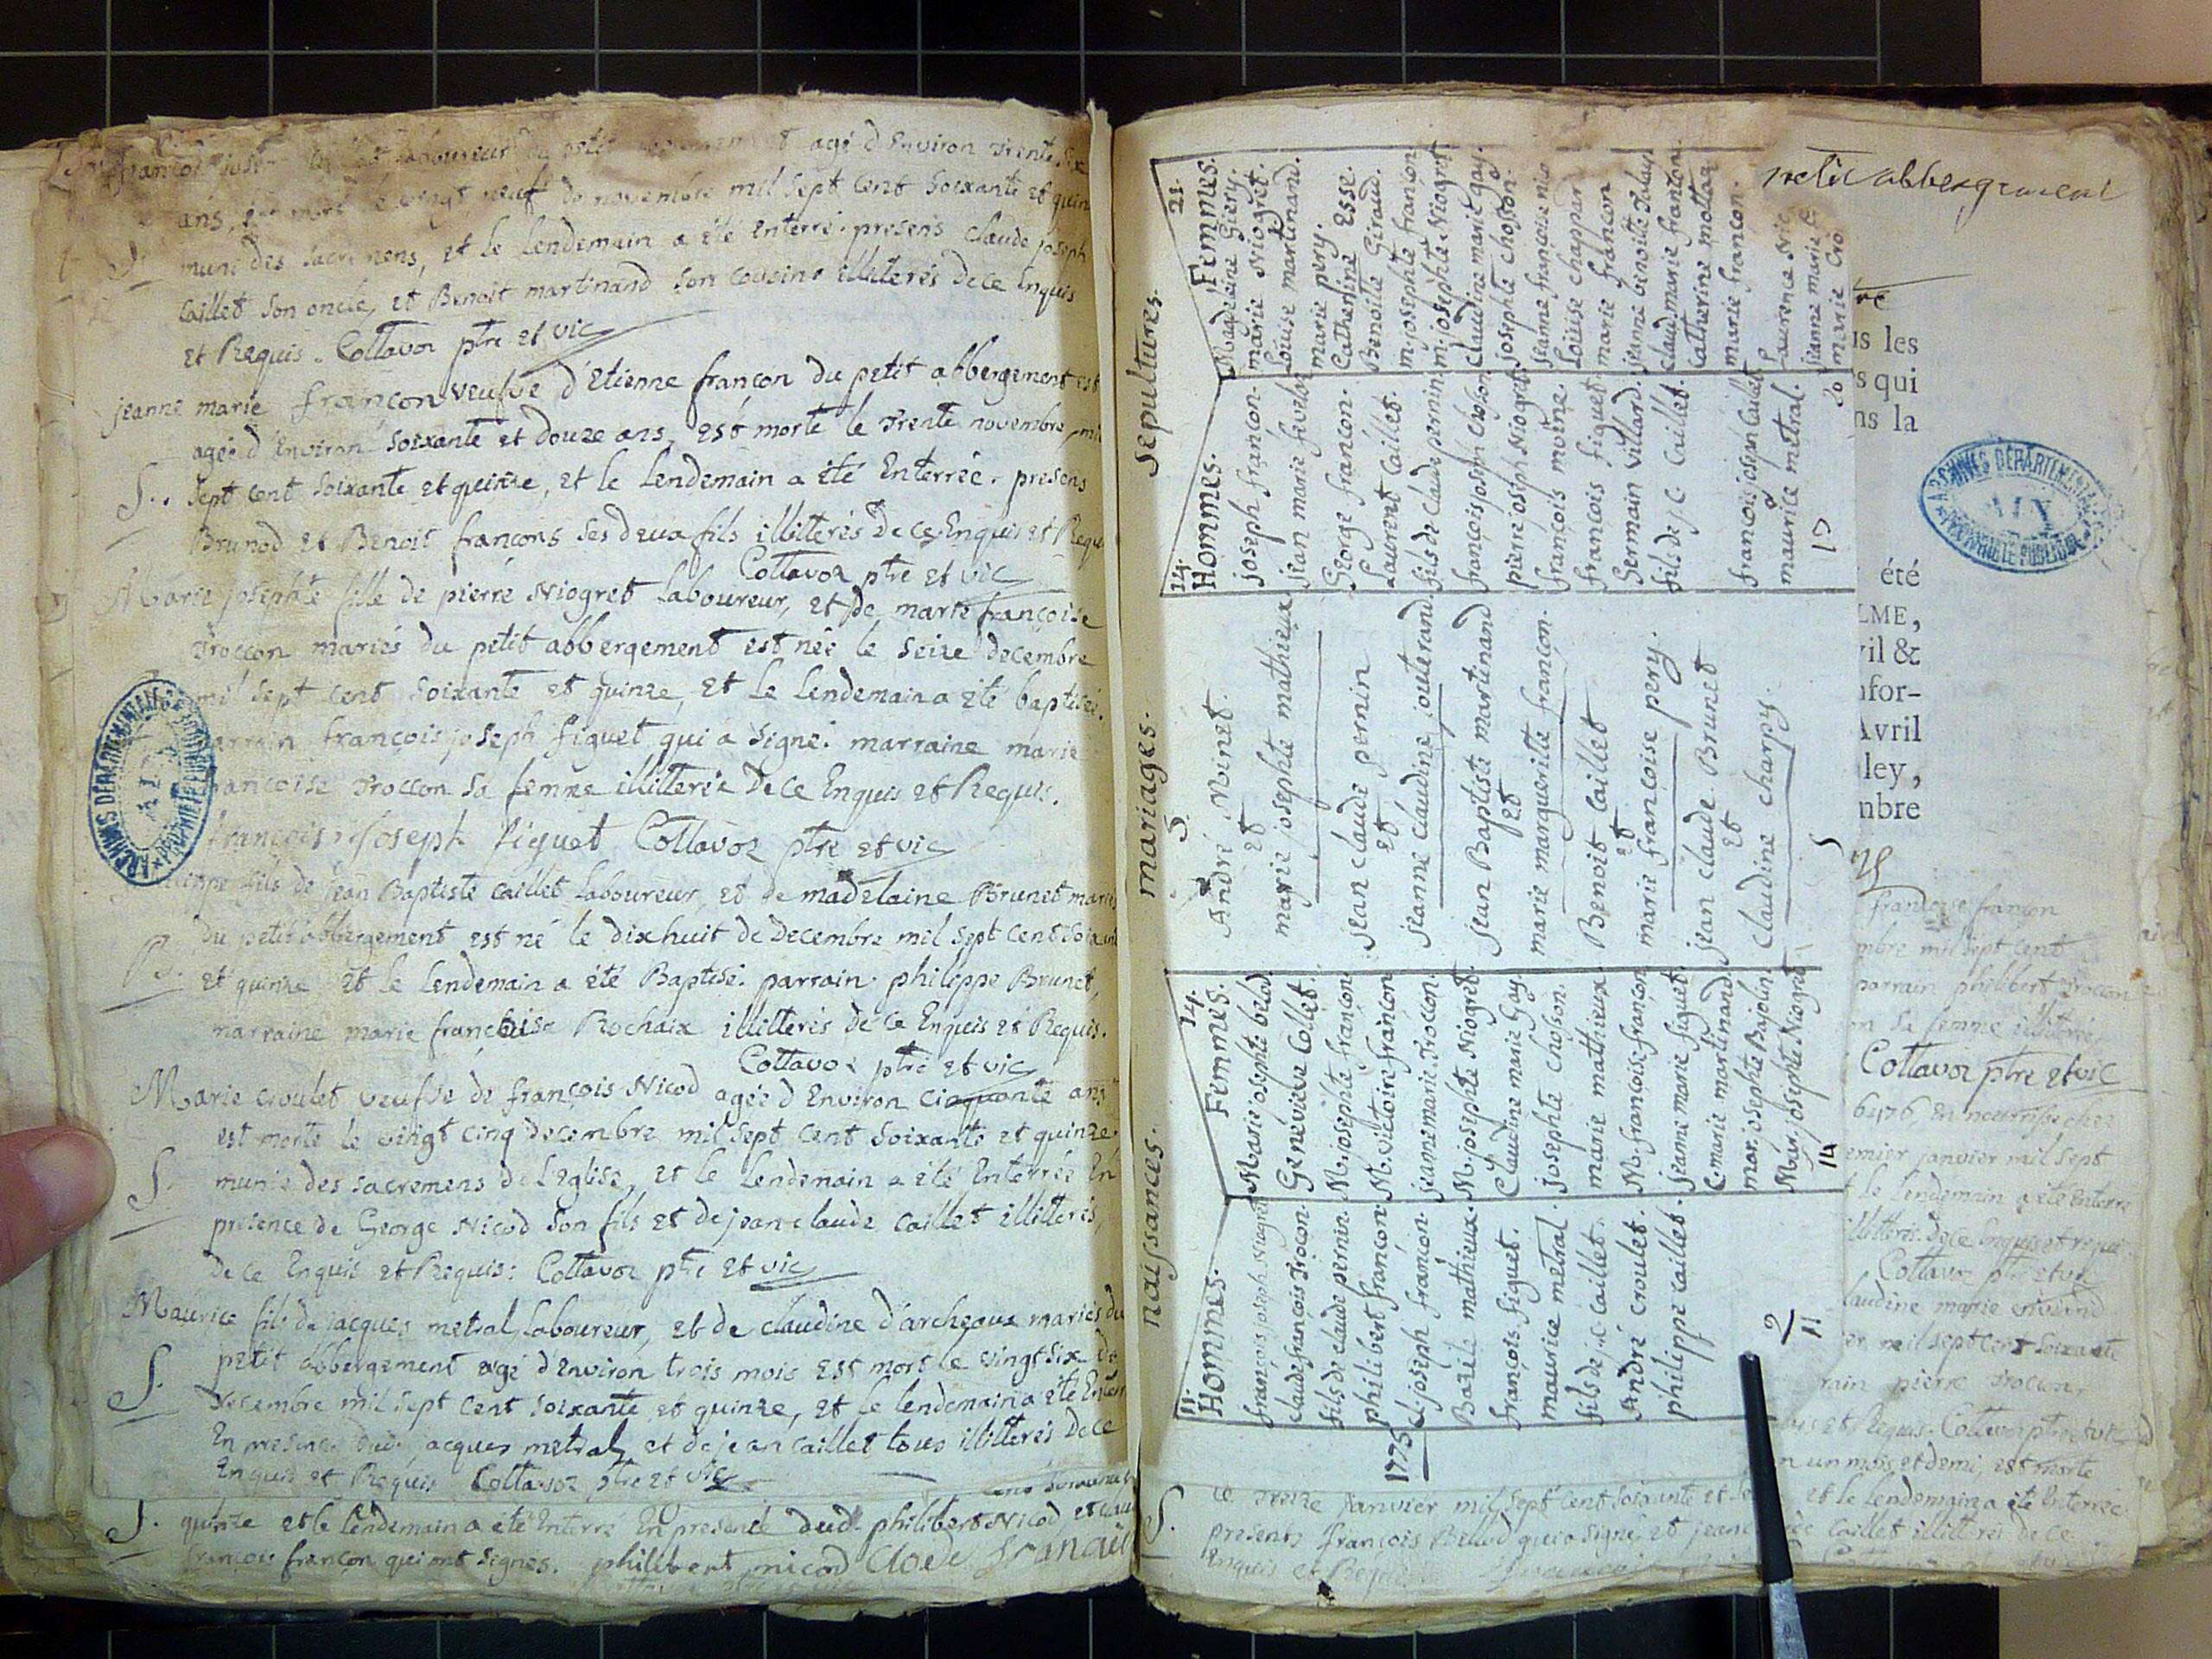 françois agé d Environ trente six
ans, mort le vingt neuf de novembre mil sept cent soixante et quin
muni des sacremens, et le lendemain a été Enterré. presens Claude joseph
Caillet son oncle, et Benoit martinand son cousin illiterés de ce Enquis
et Requis. Collavoz ptre et vic
jeanne marie françon veufve d'Etienne françon du petit abbergement est
agée d'Environ soixante et douze ans, est morte le trente novembre mil
S. sept cent soixante et quinze, et le lendemain a été Enterrée. presens
Brunod et Benoit françons ses deux fils illiterés de ce Enquis et Requ
Collavoz ptre et vic
Marie josephte fille de pierre Niogret laboureur, et de marie françoise
troccon mariés du petit abbergement est née le seize decembre
mil sept cent soixante et quinze, et le lendemain a été baptisée.
parrain françois joseph figuet qui a signé. marraine marie
françoise troccon sa femme illitterée de ce Enquis et Requis.
françois joseph figuet Collavoz ptre et vic
philippe fils de jean Baptiste caillet laboureur, et de madelaine Brunet mariés
du petit abbergement est né le dixhuit de Decembre mil sept cent soixant
et quinze et le lendemain a été Baptisé. parrain philippe Brunet,
marraine marie françoise Rochaix illitterés de ce Enquis et Requis.
Collavoz ptre et vic
Marie croulet veufve de françois Nicod agée d Environ cinquante ans
est morte le vingt cinq decembre mil sept cent soixante et quinze
S. munie des sacremens de l'Eglise, et le lendemain a été Enterrée En
presence de George Nicod son fils et de jean claude caillet illitterés,
de ce Enquis et Requis: Collavoz ptre et vic
Maurice fils de jacques metral laboureur, et de claudine d'archeaux mariés du
petit abbergement agé d'Environ trois mois est mort le vingt six de
S. decembre mil sept cent soixante et quinze, et le lendemain a été Enterr
En presence dud. jacques metral, et de jean caillet tous illitterés de ce
Enquis et Requis Collavoz ptre et vic
S. quinze et le lendemain a été Enterré En presence dud. philibert Nicod et clau
françois françon qui ont signés. philibert nicod Clode francoi
ARCHIVES DÉPARTEMENTALES
AIN
PROPRIÉTÉ PUBLIQUE
petit abbergement
1775
naissances.
11.
Hommes.
françois joseph Niogret
claude françois trocon.
fils de claude pernin.
philibert françon
c. joseph françon.
Bazile mathieux.
françois figuet.
maurice métral.
fils de j. c. caillet.
André croulet.
philippe caillet.
9
11
14.
Femmes.
Marie josephte belod
Genevieve Collet.
M. josephte françon.
M. victoire françon
jeanne marie troccon.
M. josephte Niogret.
Claudine marie Gay.
josephte choson.
marie mathieux
M. françoise françon
jeanne marie figuet.
C. marie martinand
mar. josephte Bajolin
Mar. josephte Niogret
14
mariages.
5.
André Minet.
et
marie josephte mathieux
jean claude pernin
et
jeanne claudine jouterand
jean Baptiste martinand
et
marie marguerite françon.
Benoit Caillet
et
marie françoise pery.
jean claude Brunet
et
claudine charpy.
5
sepultures.
14.
Hommes.
joseph françon.
jean marie
George françon.
Laurent Caillet.
fils de Claude pernin
françois joseph choson
pierre joseph Niogret
françois moine.
françois figuet
Germain villard.
fils de j. C. Caillet.
françois joseph Caillet
maurice metral.
21.
Femmes.
Magdelaine Giery.
marie Niogret.
Louise martinand.
marie pery.
Catherine Esse.
Benoitte Giraud.
m. josephte françon
m. josephte Niogret
Claudine marie gay.
josephte choson.
jeanne françoise nio
Loüise chappar
marie françon
jeanne benoitte
claud. marie françon
Catherine mottaz
marie françon.
Laurence
jeanne marie
marie cro
20
us les
s qui
ns la
été
LME,
vil &
nfor-
Avril
ley,
mbre
françoise françon
mbre mil sept cent
parrain philibert troccon
on sa femme illiterée
Collavoz ptre et vic
emier janvier mil sept
le lendemain a été Enterré
illitterés de ce Enquis et requis
Collavoz ptre et vic
laudine marie
er mil sept cent soixante
rain pierre trocon,
is et Requis. Collavoz ptre et vic
n un mois et demi, est morte
S. le treize janvier mil sept cent soixante et et le lendemain a été Enterrée.
presents françois Bellod qui a signé et jean caillet illitteres de ce
Enquis et Requis